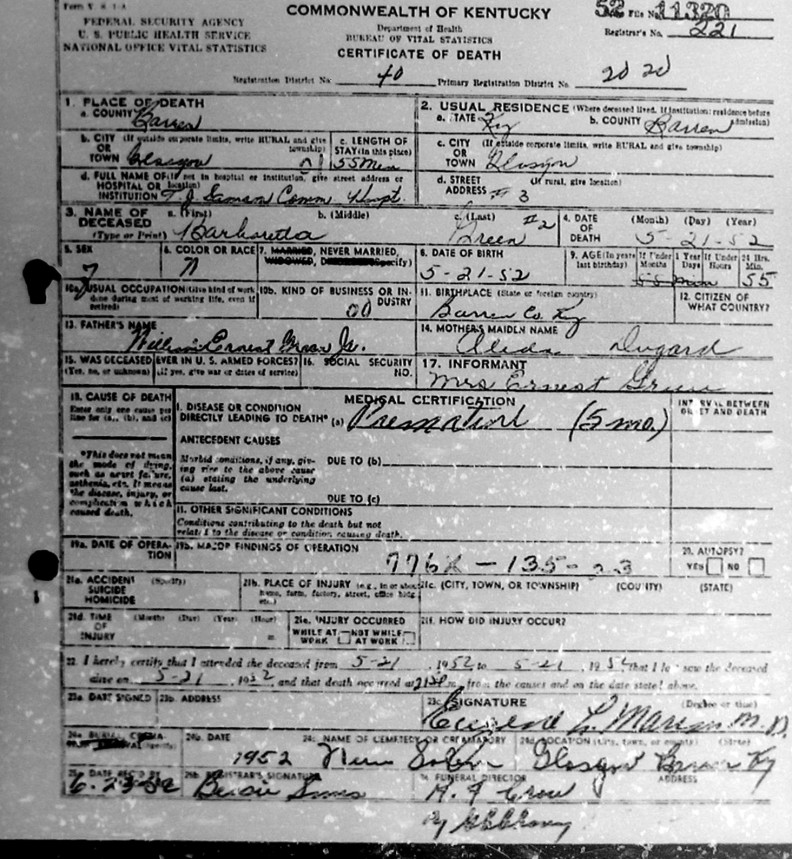 COMMONWEALTH OF KENTUCKY
52 File No. 11320
FEDERAL SECURITY AGENCY
U. S. PUBLIC HEALTH SERVICE
NATIONAL OFFICE VITAL STATISTICS
Department of Health
BUREAU OF VITAL STATISTICS
CERTIFICATE OF DEATH
Registrar's No. 221
Registration District No. 40 Primary Registration District No. 2020
1. PLACE OF DEATH
a. COUNTY Barren
2. USUAL RESIDENCE (Where deceased lived. If institution: residence before admission)
a. STATE Ky b. COUNTY Barren
b. CITY (If outside corporate limits, write RURAL and give township)
OR TOWN Glasgow
c. LENGTH OF STAY (in this place) 55 Min
c. CITY (If outside corporate limits, write RURAL and give township)
OR TOWN Glasgow
d. FULL NAME OF (If not in hospital or institution, give street address or location)
HOSPITAL OR INSTITUTION T. J. Samson Comm. Hospt.
d. STREET ADDRESS (If rural, give location)
# 3
3. NAME OF DECEASED (Type or Print)
a. (First) b. (Middle) c. (Last)
Green #2
4. DATE OF DEATH (Month) (Day) (Year)
5-21-52
5. SEX
6. COLOR OR RACE
7. MARRIED, NEVER MARRIED, WIDOWED, DIVORCED (Specify)
8. DATE OF BIRTH
5-21-52
9. AGE (In years last birthday) If Under 1 Year Months Days If Under 24 Hrs. Hours Min.
55 min 55
10a. USUAL OCCUPATION (Give kind of work done during most of working life, even if retired)
10b. KIND OF BUSINESS OR INDUSTRY
00
11. BIRTHPLACE (State or foreign country)
Barren Co. Ky
12. CITIZEN OF WHAT COUNTRY?
13. FATHER'S NAME
William Ernest Green Jr.
14. MOTHER'S MAIDEN NAME
Dugard
15. WAS DECEASED EVER IN U. S. ARMED FORCES?
(Yes, no, or unknown) (If yes, give war or dates of service)
16. SOCIAL SECURITY NO.
17. INFORMANT
Mrs Ernest Green
18. CAUSE OF DEATH
Enter only one cause per line for (a), (b), and (c)
MEDICAL CERTIFICATION
INTERVAL BETWEEN ONSET AND DEATH
I. DISEASE OR CONDITION DIRECTLY LEADING TO DEATH* (a) (5 mo.)
*This does not mean the mode of dying, such as heart failure, asthenia, etc. It means the disease, injury, or complication which caused death.
ANTECEDENT CAUSES
Morbid conditions, if any, giving rise to the above cause (a) stating the underlying cause last.
DUE TO (b)
DUE TO (c)
II. OTHER SIGNIFICANT CONDITIONS
Conditions contributing to the death but not related to the disease or condition causing death.
19a. DATE OF OPERATION
19b. MAJOR FINDINGS OF OPERATION
776X - 135 - 23
20. AUTOPSY?
YES NO
21a. ACCIDENT SUICIDE HOMICIDE (Specify)
21b. PLACE OF INJURY (e.g., in or about home, farm, factory, street, office bldg., etc.)
21c. (CITY, TOWN, OR TOWNSHIP) (COUNTY) (STATE)
21d. TIME OF INJURY (Month) (Day) (Year) (Hour) m.
21e. INJURY OCCURRED
WHILE AT WORK NOT WHILE AT WORK
21f. HOW DID INJURY OCCUR?
22. I hereby certify that I attended the deceased from 5-21, 1952 to 5-21, 1952 that I last saw the deceased
alive on 5-21, 1952, and that death occurred at m., from the causes and on the date stated above.
23a. DATE SIGNED
23b. ADDRESS
23c. SIGNATURE (Degree or title)
M.D.
24a. BURIAL, CREMATION, REMOVAL (Specify)
24b. DATE
1952
24c. NAME OF CEMETERY OR CREMATORY
New Salem
24d. LOCATION (City, town, or county) (State)
Glasgow Barren Ky
25a. DATE REC'D BY
6-23-52
25b. REGISTRAR'S SIGNATURE
26. FUNERAL DIRECTOR ADDRESS
A. F. Crow